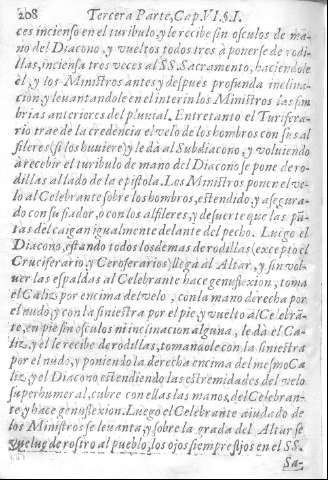 208 Tercera Parte, Cap. VI. §. I.
ces incienso en el turibulo, y le recibe sin osculos de ma-
no del Diacono, y vueltos todos tres à ponerse de rodi-
llas, inciensa tres veces al SS. Sacramento, haciendole
èl, y los Ministros antes y después profunda inclina-
cion, y levantandole en el interin los Ministros las sim-
brias anteriores del pluvial. Entretanto el Turifera-
rio trae de la credencia el velo de los hombros con sus al
fileres (si los huviere) y le dà al Subdiacono, y volviendo
à recebir el turibulo de mano del Diacono se pone de ro-
dillas al lado de la epistola. Los Ministros ponen el ve-
lo al Celebrante sobre los hombros, estendido, y asegura-
do con su fiador, ò con los alfileres, y de suerte que las pũ-
tas del caigan igualmente delante del pecho. Luego el
Diacono, estando todos los demas de rodillas (excepto el
Cruciferario, y Ceroferarios) llega al Altar, y sin vol-
ver las espaldas al Celebrante hace genuflexion, toma
el Caliz por encima del velo, con la mano derecha por
el nudo, y con la siniestra por el pie, y vuelto al Celebrã-
te, en pie sin osculos ni inclinacion alguna, le dà el Ca-
liz, y el le recibe de rodillas, tomandole con la siniestra
por el nudo, y poniendo la derecha encima del mesmo Ca
liz, y el Diacono estendiendo las estremidades del velo
superhumeral, cubre con ellas las manos, del Celebran-
te, y hace genuflexion. Luego el Celebrante aiudado de
los Ministros se levanta, y sobre la grada del Altar se
vuelve de rostro al pueblo, los ojos siempre fijos en el SS.
Sa-